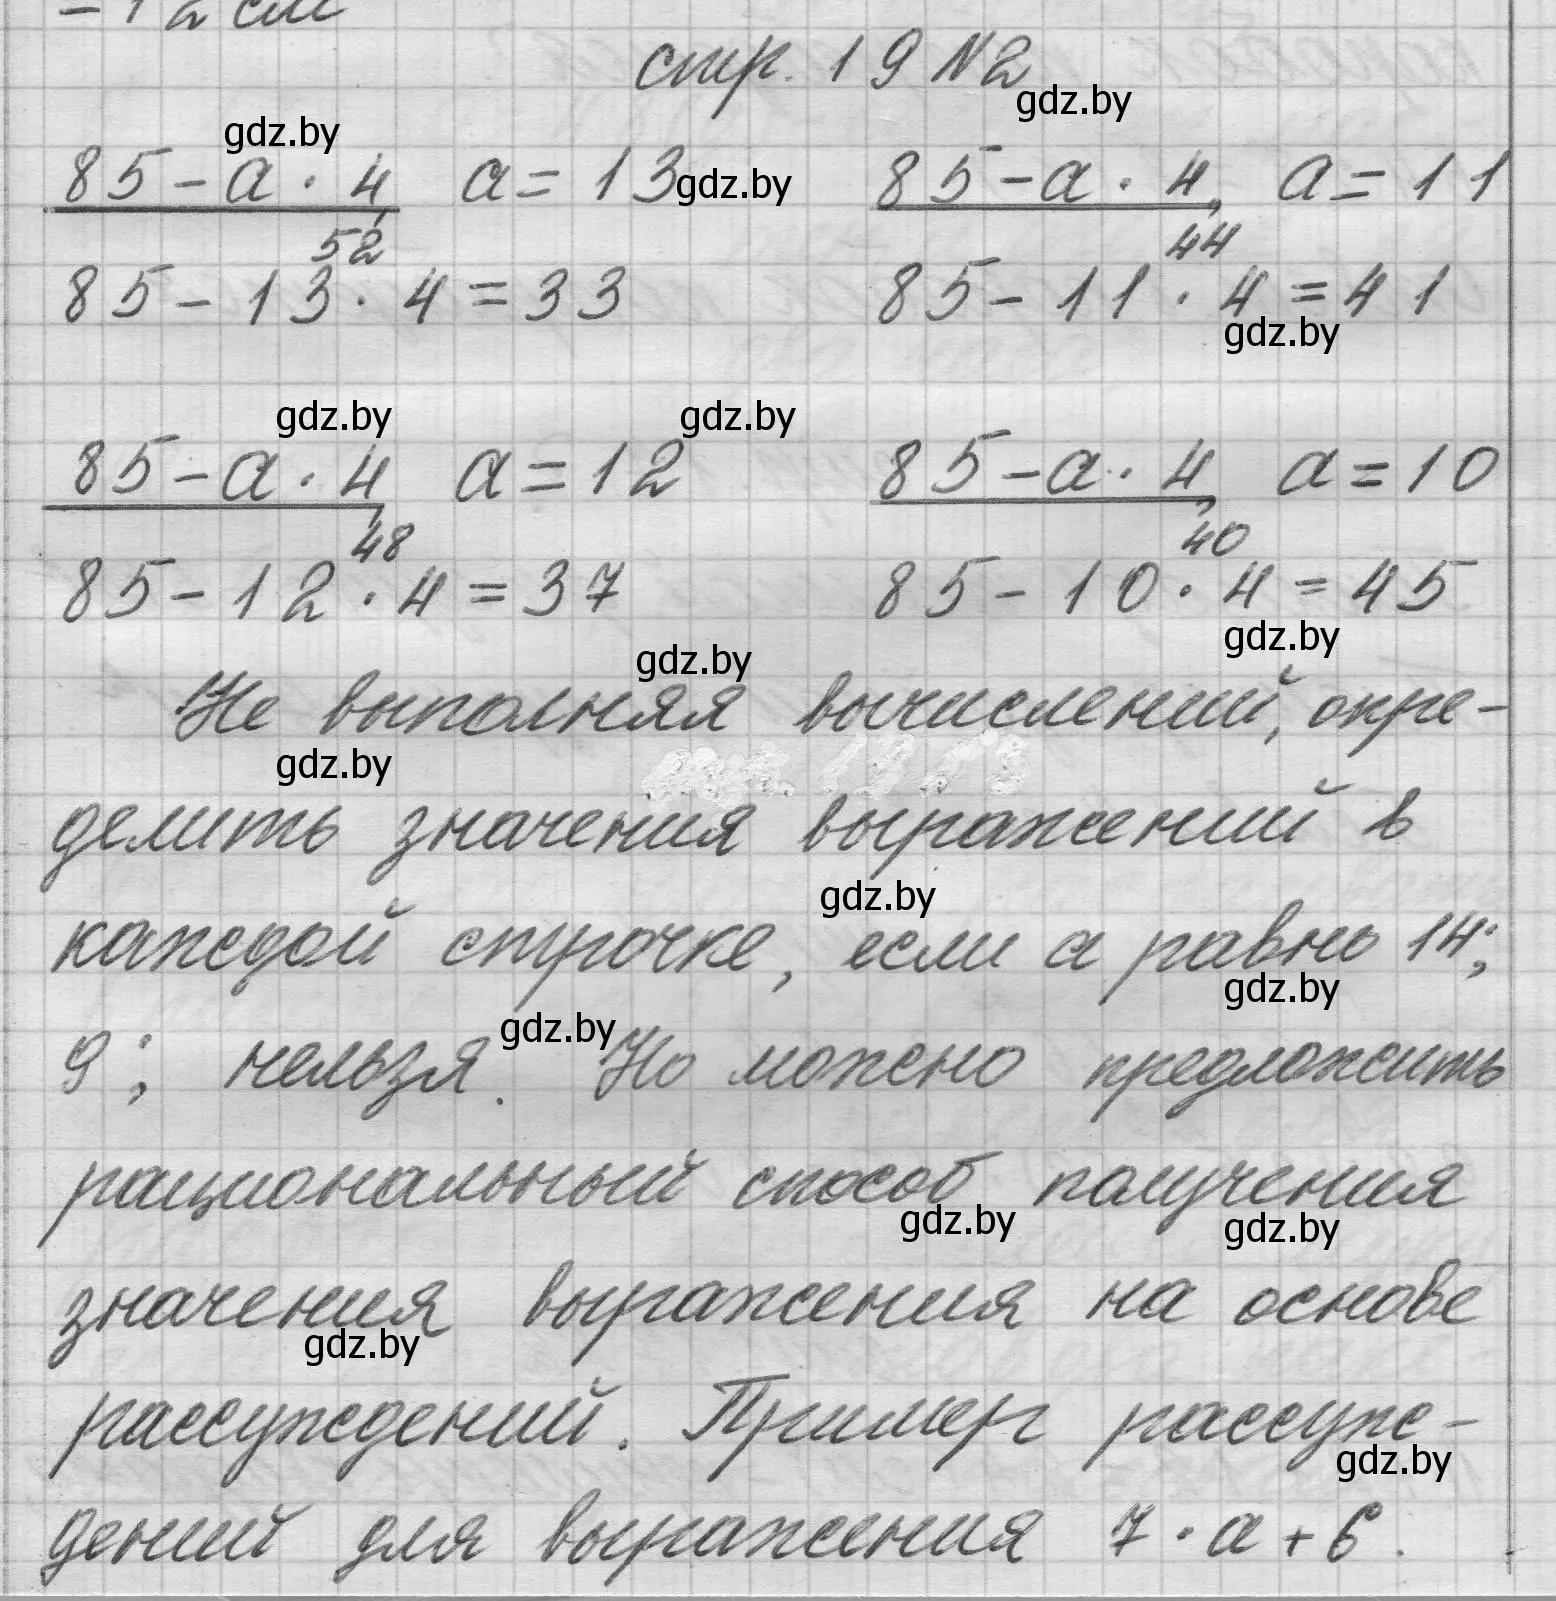 - 12 см
стр. 19 №2
gdz.by
gdz.by
85 - а · 4, а = 13 gdz.by 85 - а · 4, а = 11
52 44
85 - 13 · 4 = 33 85 - 11 · 4 = 41
gdz.by
gdz.by gdz.by
85 - а · 4, а = 12 85 - а · 4, а = 10
48 40
85 - 12 · 4 = 37 85 - 10 · 4 = 45
gdz.by
gdz.by
Не выполняя вычислений, опре-
gdz.by
делить значения выражений в
gdz.by
каждой строчке, если а равно 14;
gdz.by
gdz.by
9; нельзя. Но можно предложить
рациональный способ получения
gdz.by gdz.by
значения выражения на основе
gdz.by
рассуждений. Пример рассуж-
gdz.by
дений для выражения 7 · а + 6.